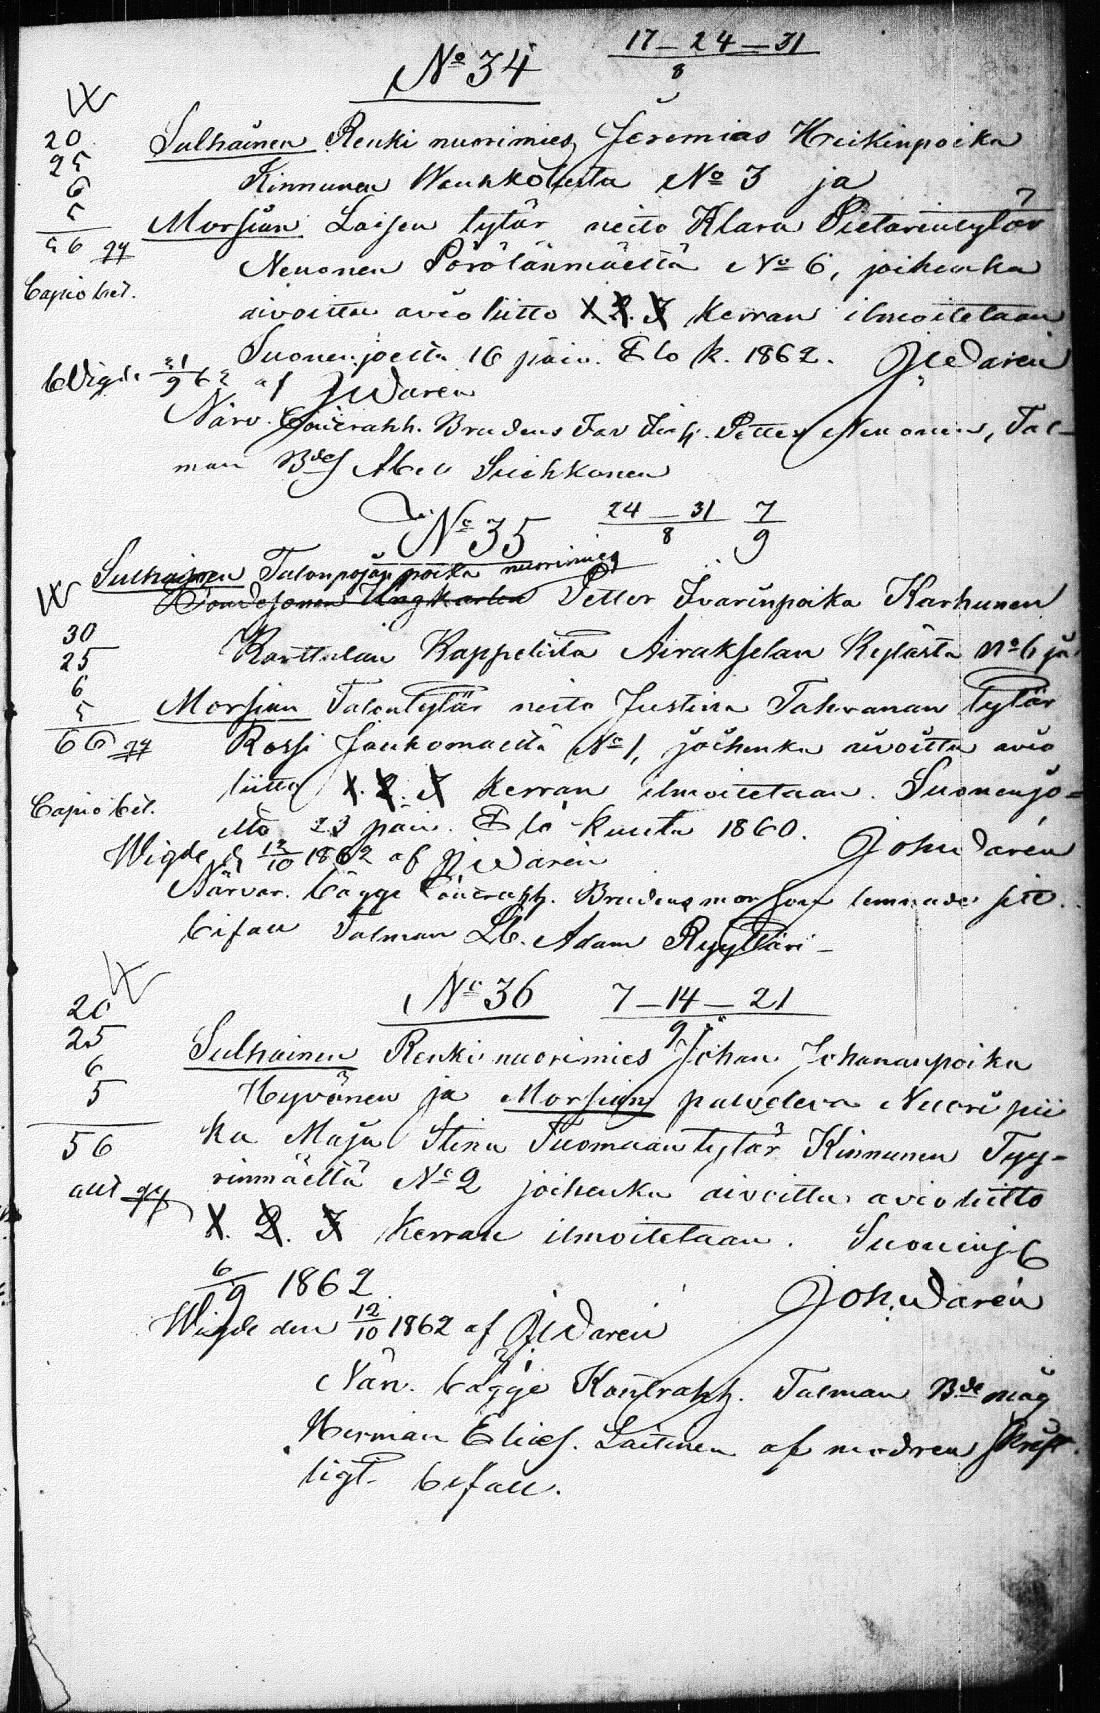 17–24–31
8
No 34
20
25
6
5
56
Capio bet.
Sulhainen Renki nuorimies Jeremias Heikinpoika
Kinnunen No 3 ja
Morsian Loisen tytär neito Klara Pietarintytär
Neuonen Pörölänmäeltä No 6, joihenka
aivoittu avioliitto 1. 2. 3 kerran ilmoitetaan
Suonenjoella 16 päiv. Elo k. 1862. JWDarén
Wigde 21/9 62 af JWDarén
Närv. Contrahh. Brudens Far Petter Neuonen, Tal-
man Abel Suihkonen
No 35 24–31 7
8 9
Sulhainen Talonpojan poika nuorimies
30
25
6
5
66
Capio bet.
Petter Ivarinpoika Karhunen
Karttulan Kappelista Airakselan Kylästä No 6 ja
Morsian Talontytär neito Justina Tahvanan tytär
Rossi No 1, joihenka aivoittu avio
liitto 1. 2. 3 kerran ilmoitetaan. Suonenjo=
ella 23 päiv. Elo kuuta 1860.
Joh WDarén
Wigde d 12/10 1862 af JWDarén
Närvar. bägge Contrahh. Brudens mor som lemnade sitt
bifall Talman Adam Ryytläri –
No 36 7–14–21
9
20
25
6
5
56
allt
Sulhainen Renki nuorimies Johan Johananpoika
Hyvönen ja Morsian palveleva Nuori pii
ka Maja Stina Tuomaantytär Kinnunen Tyy-
rinmäeltä No 2 joihenka aivoittu avioliitto
1. 2. 3 kerran ilmoitetaan. Suonenj
6/9 1862
Joh. WDarén
Wigde den 12/10 1862 af JWDarén
Närv. bägge Kontrahh. Talman Bde måg
Herman Elias. Laitinen af modren skrift
ligt bifall.